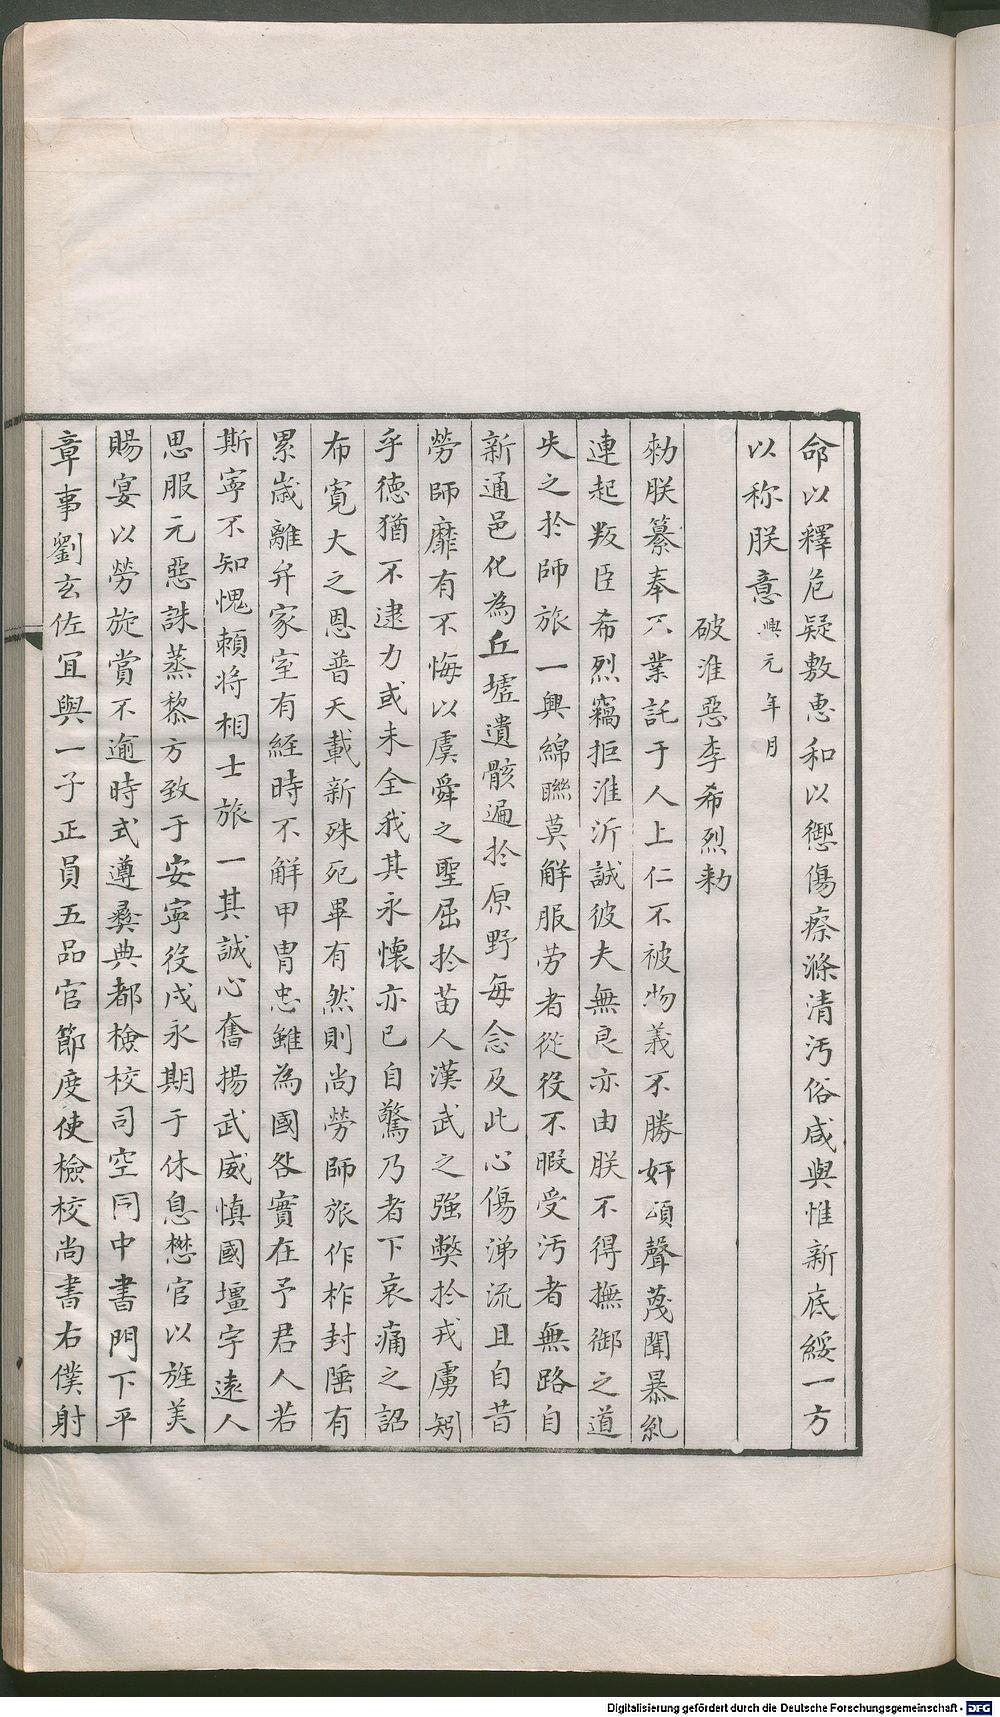 命以釋危疑敷惠和以懲傷瘵滌清汚俗咸與惟新底綏一方
以称朕意興元年月
破淮惡李希烈勑
勑朕纂奉丕業託于人上仁不被物義不勝奸頌聲蔑聞暴乱
連起叛臣希烈竊拒淮沂誠彼夫無良亦由朕不得撫御之道
失之扵師旅一興綿聮莫解服劳者從役不暇受汚者無路自
新通邑化為丘墟遺骸遍扵原野每念及此心傷涕流且自昔
勞師靡有不悔以虞舜之聖屈扵苗人漢武之强獘扵戎虜矧
乎德猶不逮力或未全我其永懷亦已自驚乃者下哀痛之詔
布寛大之恩普天載新殊死畢有然則尚勞師旅作柞封陲有
累歳離弃家室有経時不解甲胄忠雖為國咎實在予君人若
斯寧不知愧頼将相士旅一其誠心奮揚武威慎國壃宇遠人
思服元惡誅蒸黎方致于安寧役戍永期于休息懋官以旌美
賜宴以勞旋賞不逾時式遵彝典都檢校司空同中書門下平
章事劉玄佐宜與一子正員五品官節度使檢校尚書右僕射
Digitalisierung gefördert durch die Deutsche Forschungsgemeinschaft - DFG